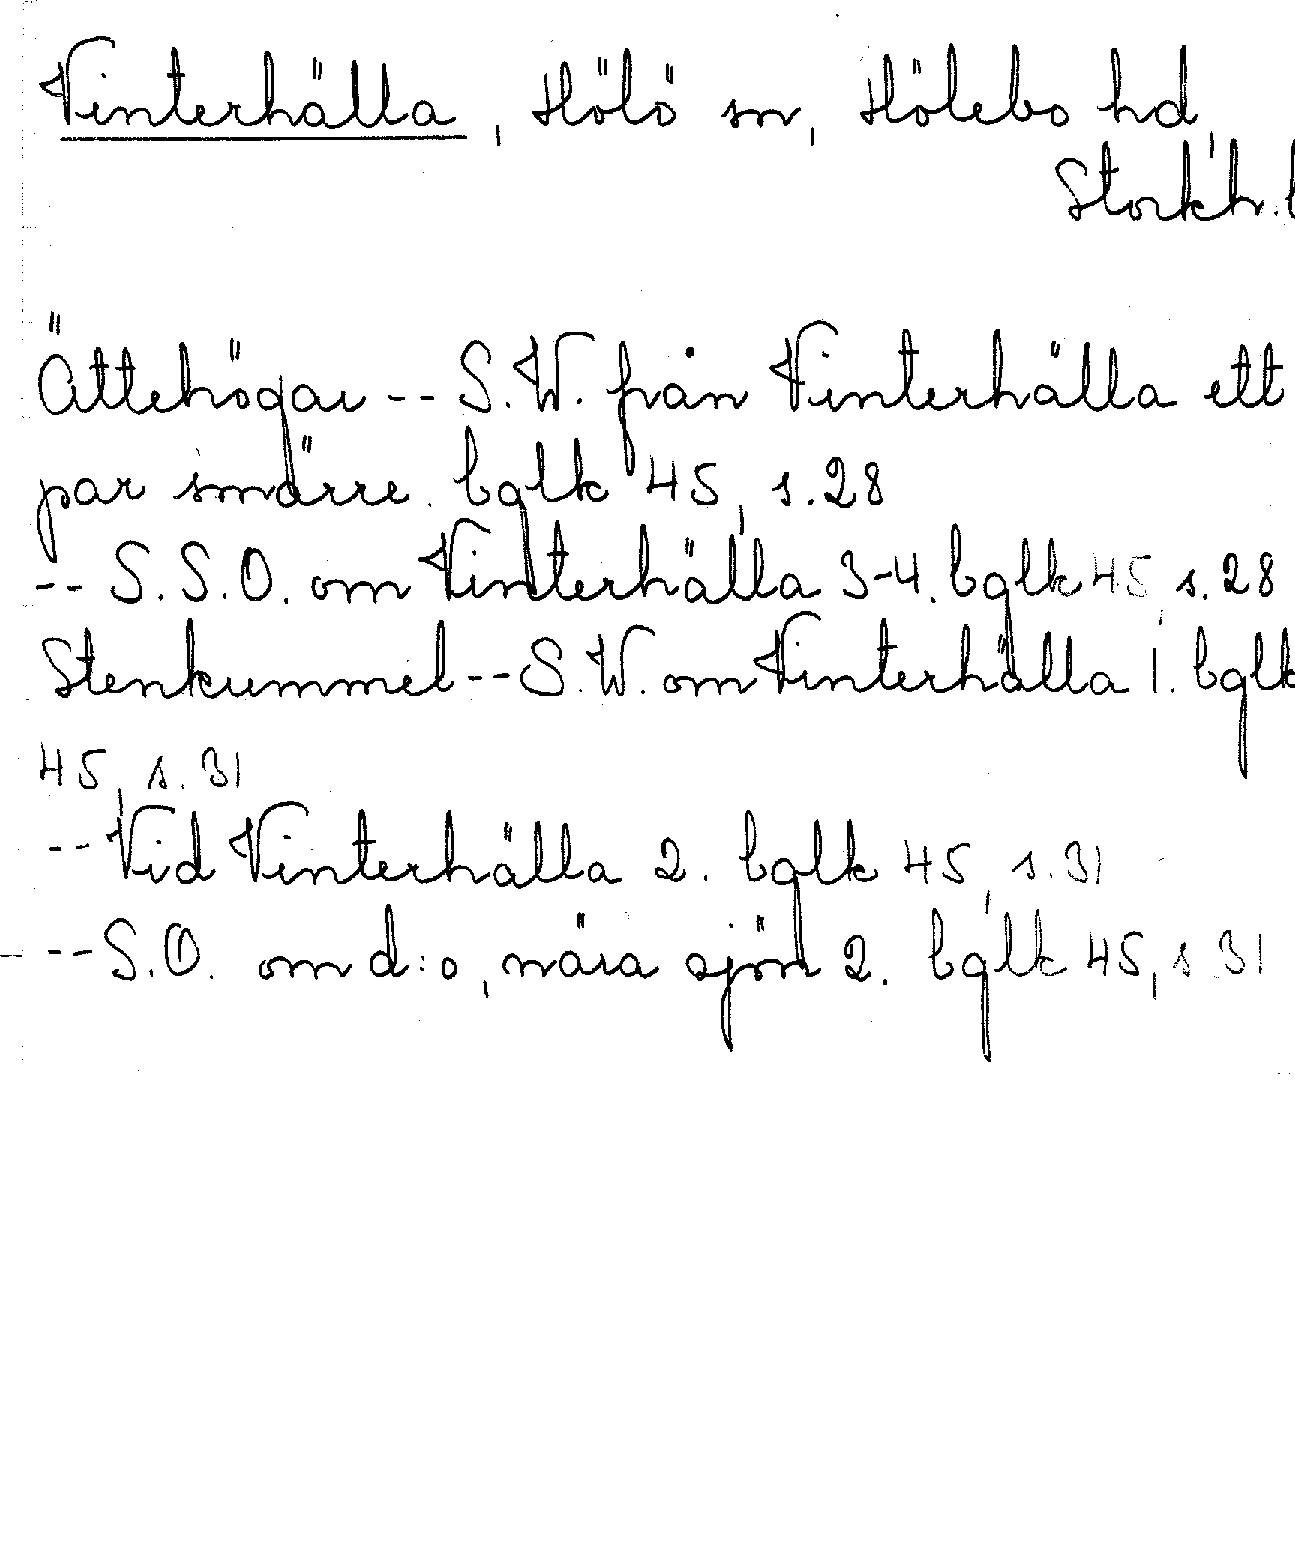 Vinterhälla, Hölö sn, Hölebo hd,
Storkh. l
Ättehögar -- S.W. från Vinterhälla ett
par smärre. bglk 45, s. 28
-- S.S.O. om Vinterhälla 3-4. bglk 45, s. 28
Stenkummel -- S.W. om Vinterhälla 1. bglk
45, s. 31
-- Vid Vinterhälla 2. bglk 45, s. 31
-- S.O. om d:o, nära sjön 2. bglk 45, s 31